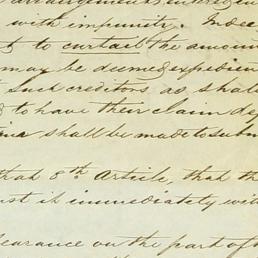 arrangements entered
with impunity. Indee
t to curtail the amoun
may be deemed expedien
t such creditors as shal
d to have their claim de
shall be made to subm
that 8th Article, that th
ist it immediately wit
earance on the part of